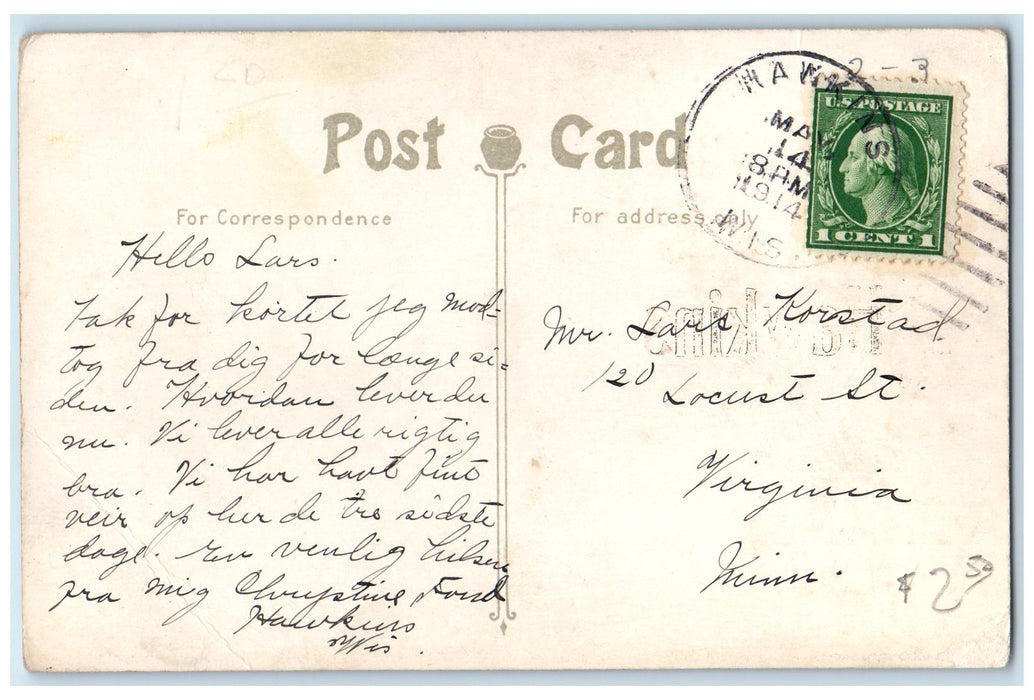 2-3
HAWKINS
MAY
14
8 PM
1914
WIS.
U.S. POSTAGE
1 CENT 1
Post Card
For Correspondence
For address only
Hello Lars.
Tak for kortet jeg mod-
tog fra dig for længe si-
den. Hvordan lever du
nu. Vi lever alle rigtig
bra. Vi har havt fint
veir op her de tre sidste
dage. En venlig hilsen
fra mig Chrystine
Hawkins
Wis.
Hawkins
Mr. Lars Korstad.
120 Locust St.
Virginia
Minn.
$2.50